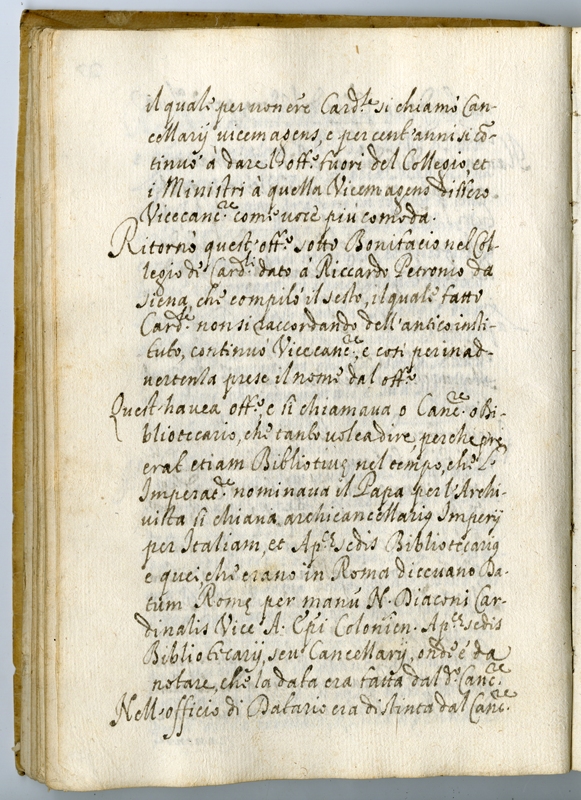 il quale per non ẽre Card.le si chiamò Can-
cellarij vicem agens, e per cent'anni si cõ-
tinuò à dare l'off.o fuori del Collegio, et
i Ministri à quella Vicem agens dissero
Vicecanc.re come voce piu comoda.
Ritornò quest'off.o sotto Bonifacio nel Col-
legio de Card.li dato à Riccardo Petronio da
siena, che compilò il sesto, il quale fatto
Card.le non si raccordando dell'antico insti-
tuto, continuò Vicecanc.re, e così per inad-
vertenza prese il nome dal off.o
Quest havea off.o, e si chiamava o Canc.re o Bi-
bliotecario, che tanto volea dire, perche
erat etiam nel tempo, che L'
Imperat.e nominava il Papa per l'Archi-
vista si chiava archicancellarius Imperij
per Italiam, et Ap.cæ sedis Bibliotecarius
e quei che erano in Roma dicevano Da-
tum Romę per manũ N. Diaconi Car-
dinalis Vice A. Epi Colonien. Ap.cæ sedis
Bibliotecarij, seu Cancellarij, onde è da
notare, che la data era fatta dal d.o Canc.re
Nell officio di Datario era distinta dal Canc.re